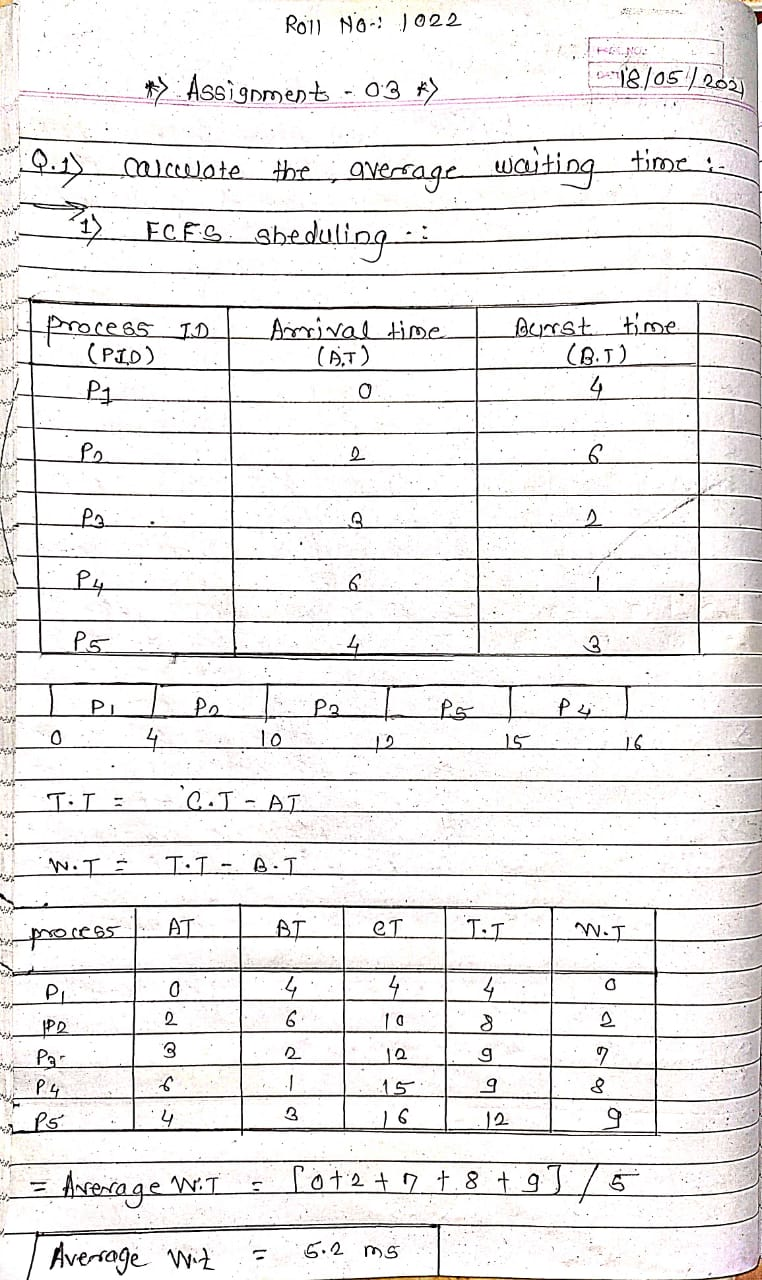 Roll No-: 1022
18/05/2021
*> Assignment - 03 *>
Q.1> calculate the average waiting time :-
1> FCFS. sheduling -:
process ID Arrival time Burst time
(PID) (A.T) (B.T)
P1 0 4
P2 2 6
P3 3 2
P4 6 1
P5 4 3
P1 P2 P3 P5 P4
0 4 10 12 15 16
T.T = C.T - AT
W.T = T.T - B.T
process AT BT CT T.T W.T
P1 0 4 4 4 0
P2 2 6 10 8 2
P3 3 2 12 9 7
P4 6 1 15 9 8
P5 4 3 16 12 9
= Average W.T = [0+2+7+8+9] / 5
Average W.t = 5.2 ms